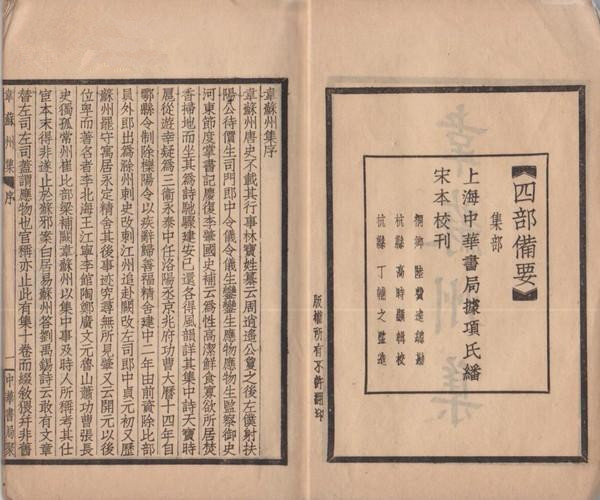 《四部備要》
集部
上海中華書局據項氏繙
宋本校刊
桐鄉 陸費逵總勘
杭縣 高時顯輯校
杭縣 丁輔之監造
版權所有不許翻印
韋蘇州集序
韋蘇州唐史不載其行事林寶姓纂云周逍遙公敻之後左僕射扶
陽公待價生司門郎中令儀令儀生鑾鑾生應物應物生監察御史
河東節度掌書記慶復李肇國史補云為性高潔鮮食寡欲所居焚
香掃地而坐其為詩馳驟建安已還各得風韻詳其集中詩天寶時
扈從遊幸疑為三衞永泰中任洛陽丞京兆府功曹大曆十四年自
鄠縣令制除櫟陽令以疾辭歸善福精舍建中二年由前資除比部
員外郎出為滁州刺史改刺江州追赴闕改左司郎中貞元初又歷
蘇州罷守寓居永定精舍其後事迹究尋無所見肇又云開元以後
位卑而著名者李北海王江寧李館陶鄭廣文元魯山蕭功曹張長
史獨孤常州崔比部梁補闕韋蘇州以集中事及時人所稱考其仕
宦本末得非遂止於蘇邪案白居易蘇州答劉禹錫詩云敢有文章
替左司左司蓋謂應物也官稱亦止此有集十卷而綴敘猥并非舊
韋蘇州集 序 一 中華書局聚